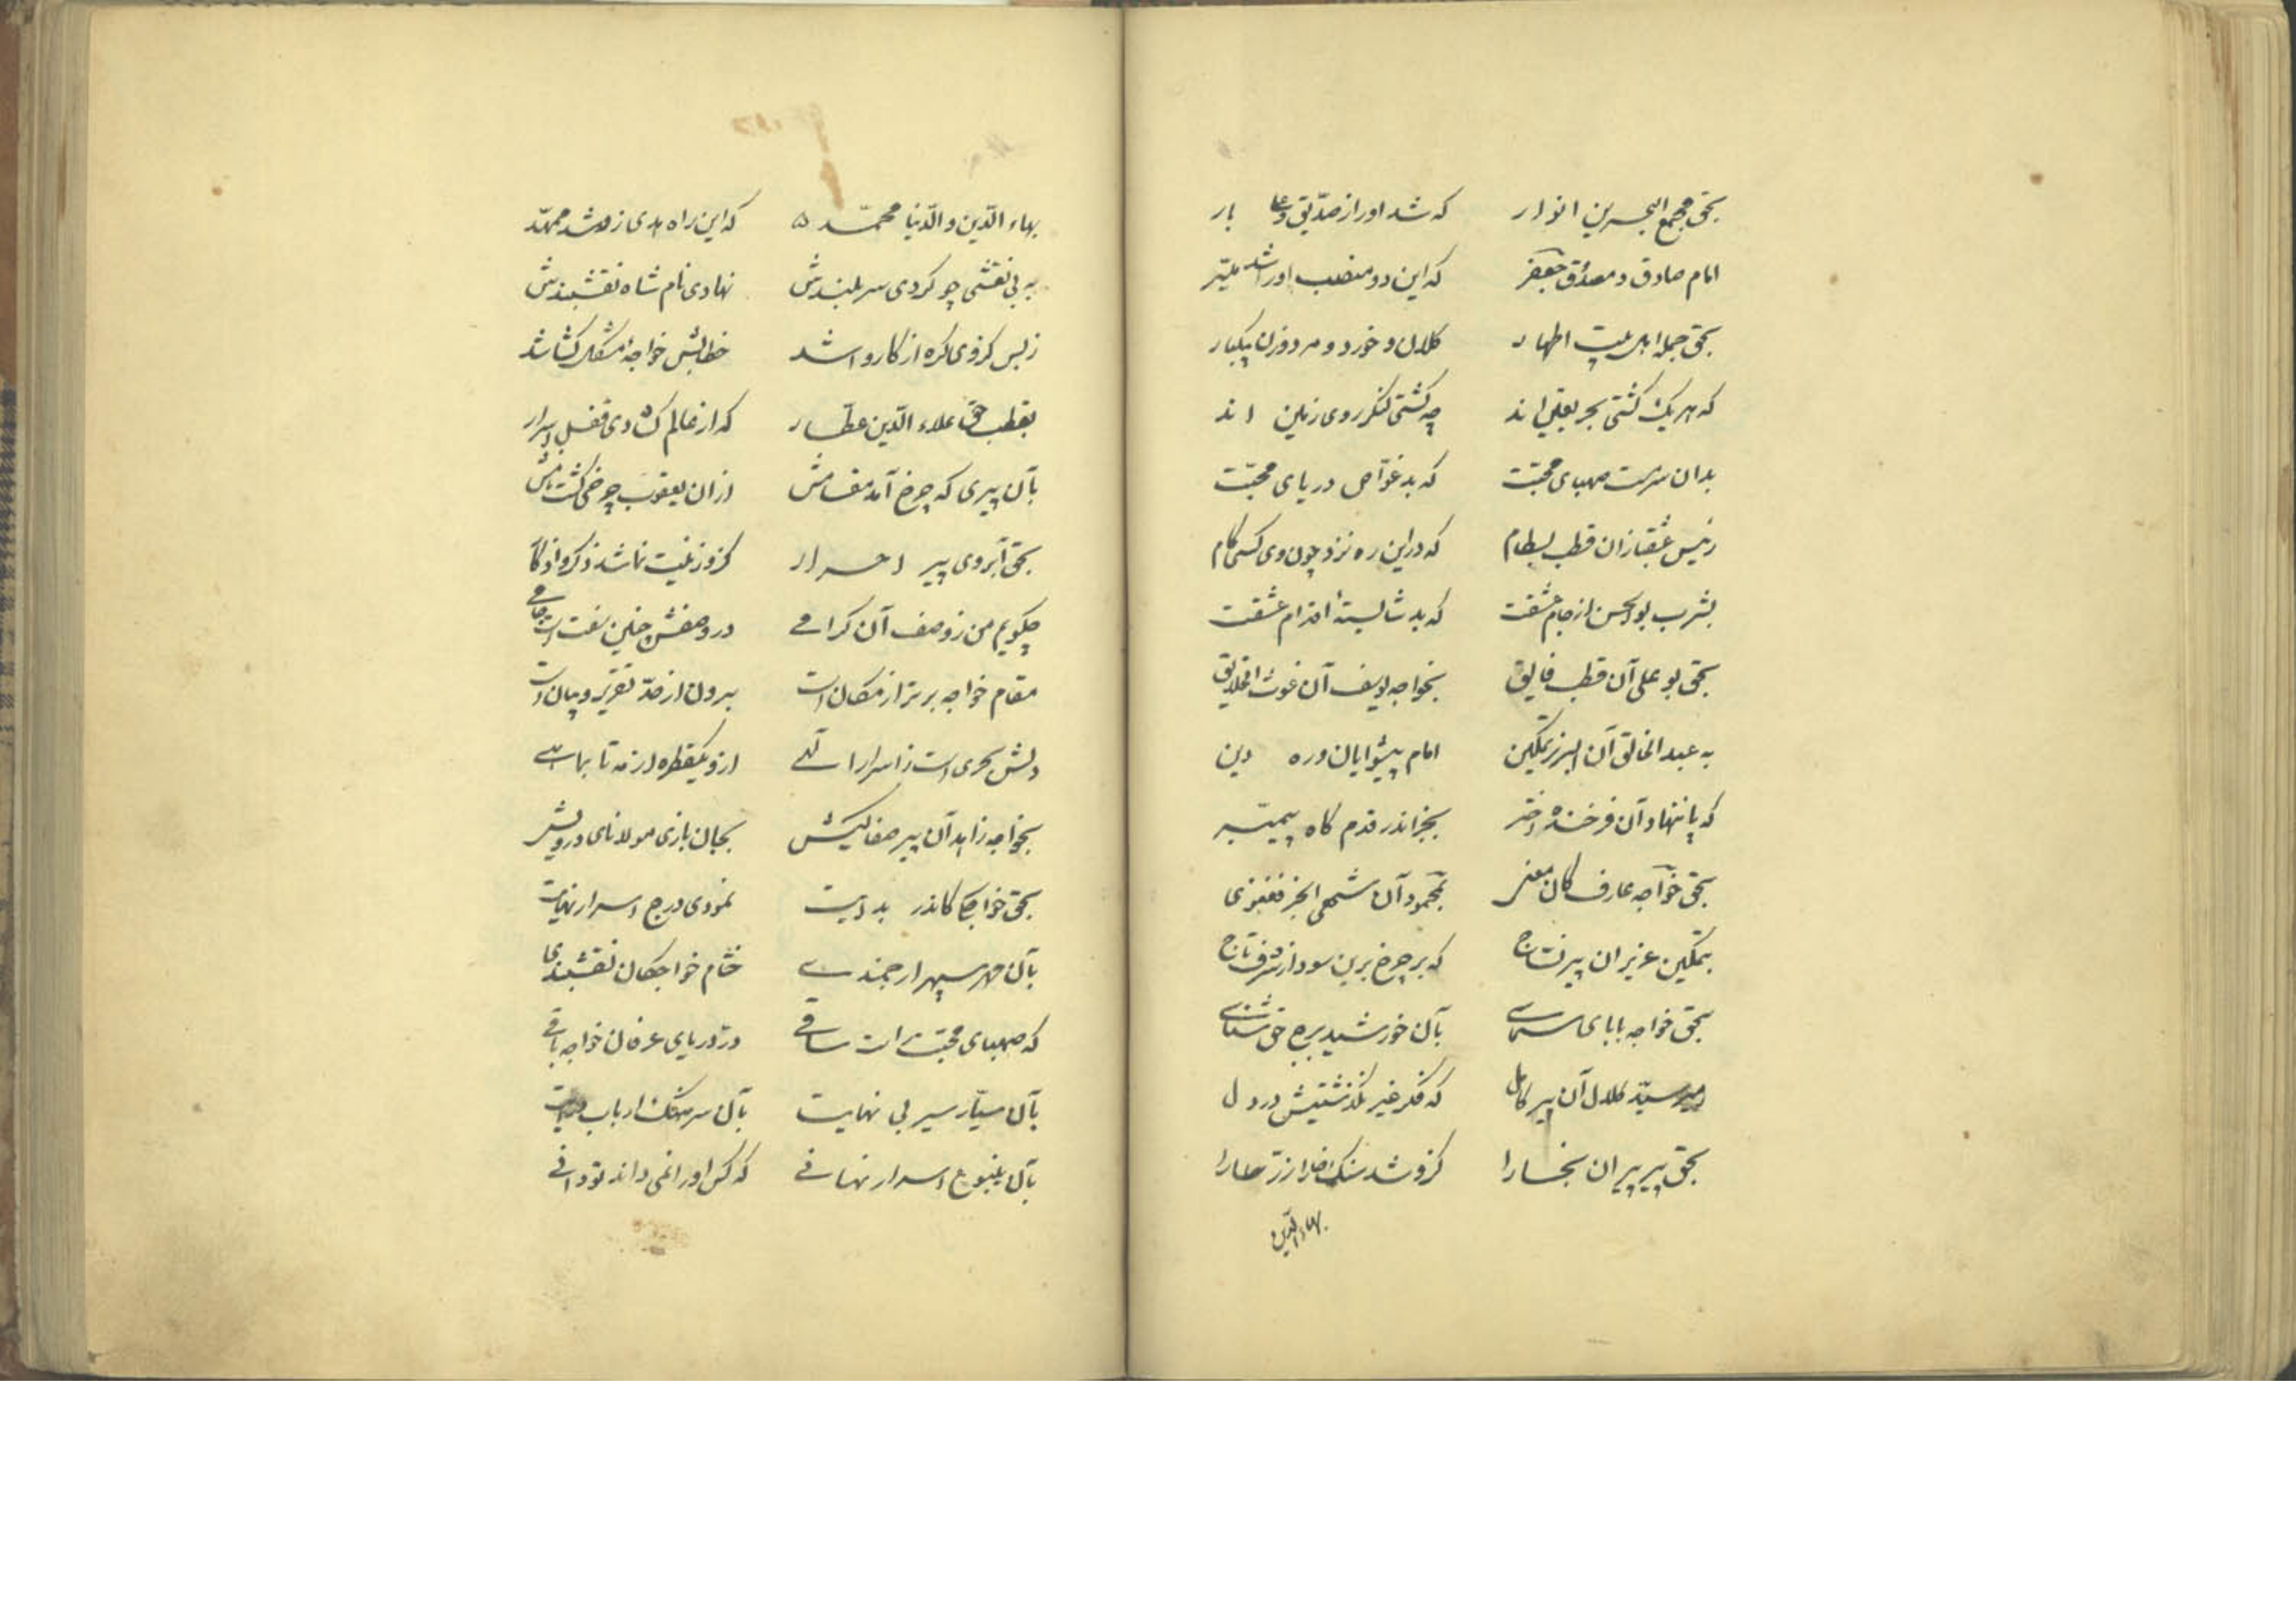 بحق مجمع البحرین انوار که شد او را ز صدیق و علی بار
امام صادق و مصدق جعفر که این دو منصب او را شد میسّر
بحق جمله اهل بیت اطهار کلان و خورد و مرد و زن بیکبار
که هر یک کشتی بحر یقین اند چه کشتی لنکر روی زمین اند
بدان سرمست صهبای محبّت که بد غوّاص دریای محبّت
رئیس عشقبازان قطب بسطام که در این ره نزد چون وی کسی کام
بشرب بوالحسن از جام عشقت که بد شایستهٔ اقدام عشقت
بحق بو علی آن قطب فایق بخواجه یوسف آن غوث الخلایق
به عبد الخالق آن البرز تمکین امام پیشوایان ره دین
که پا ننهاد آن فرخنده اختر بجز اندر قدم کاه پیمبر
بحق خواجه عارف کان معنی بمحمود آن شه انجیر فغنوی
بتمکین عزیزان پیر نساج که بر چرخ برین سود از شرف تاج
بحق خواجه بابای سماسی بآن خورشید برج حق شناسی
بمیر سیّد کلال آن پیر کامل که فکر غیر نکذشتیش در دل
بحق پیر پیران بخارا کزو شد سنک خارا زرّ طارا
بهاء الدین
بهاء الدّین و الدّنیا محمّد که این راه هدی زو شد ممهّد
به بی نقشی چو کردی سر بلندش نهادی نام شاه نقشبندش
ز بس کز وی کره از کار وا شد خطابش خواجهٔ مشکل کشا شد
بقطب حق علاء الدّین عطّار که از عالم کشادی قفل اسرار
بآن پیری که چرخ آمد مقامش از ان یعقوب چرخی کشت نامش
بحق آبروی پیر احرار کزو زینت نما شد ذکر و اذکار
چکویم من ز وصف آن کرامی در وصفش چنین سفت است جامی
مقام خواجه برتر از مکان است برون از حدّ تقریر و بیان است
دلش بحری است ز اسرار الهی ازو یکقطره از مه تا بماهی
بخواجه زاهد آن پیر صفا کیش بجان بازی مولانای درویش
بحق خواجکی کاندر بدایت نمودی درج اسرار نهایت
بآن مهر سپهر ارجمندی ختام خواجکان نقشبندی
که صهبای محبّت راست ساقی در دریای عرفان خواجه باقی
بآن سیّار سیر بی نهایت بآن سرهنک ارباب هدایت
بآن ینبوع اسرار نهانی که کس او را نمی داند تو دانی